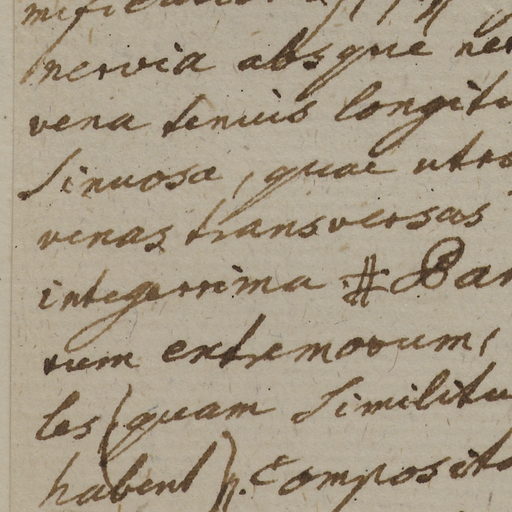 nervia absque ner
vena tenuis longitu
Sinuosa, quae utro
venas transversas
integerrima ⋕ Bar
rum extremorum,
les (quam Similitu
habent). Composita